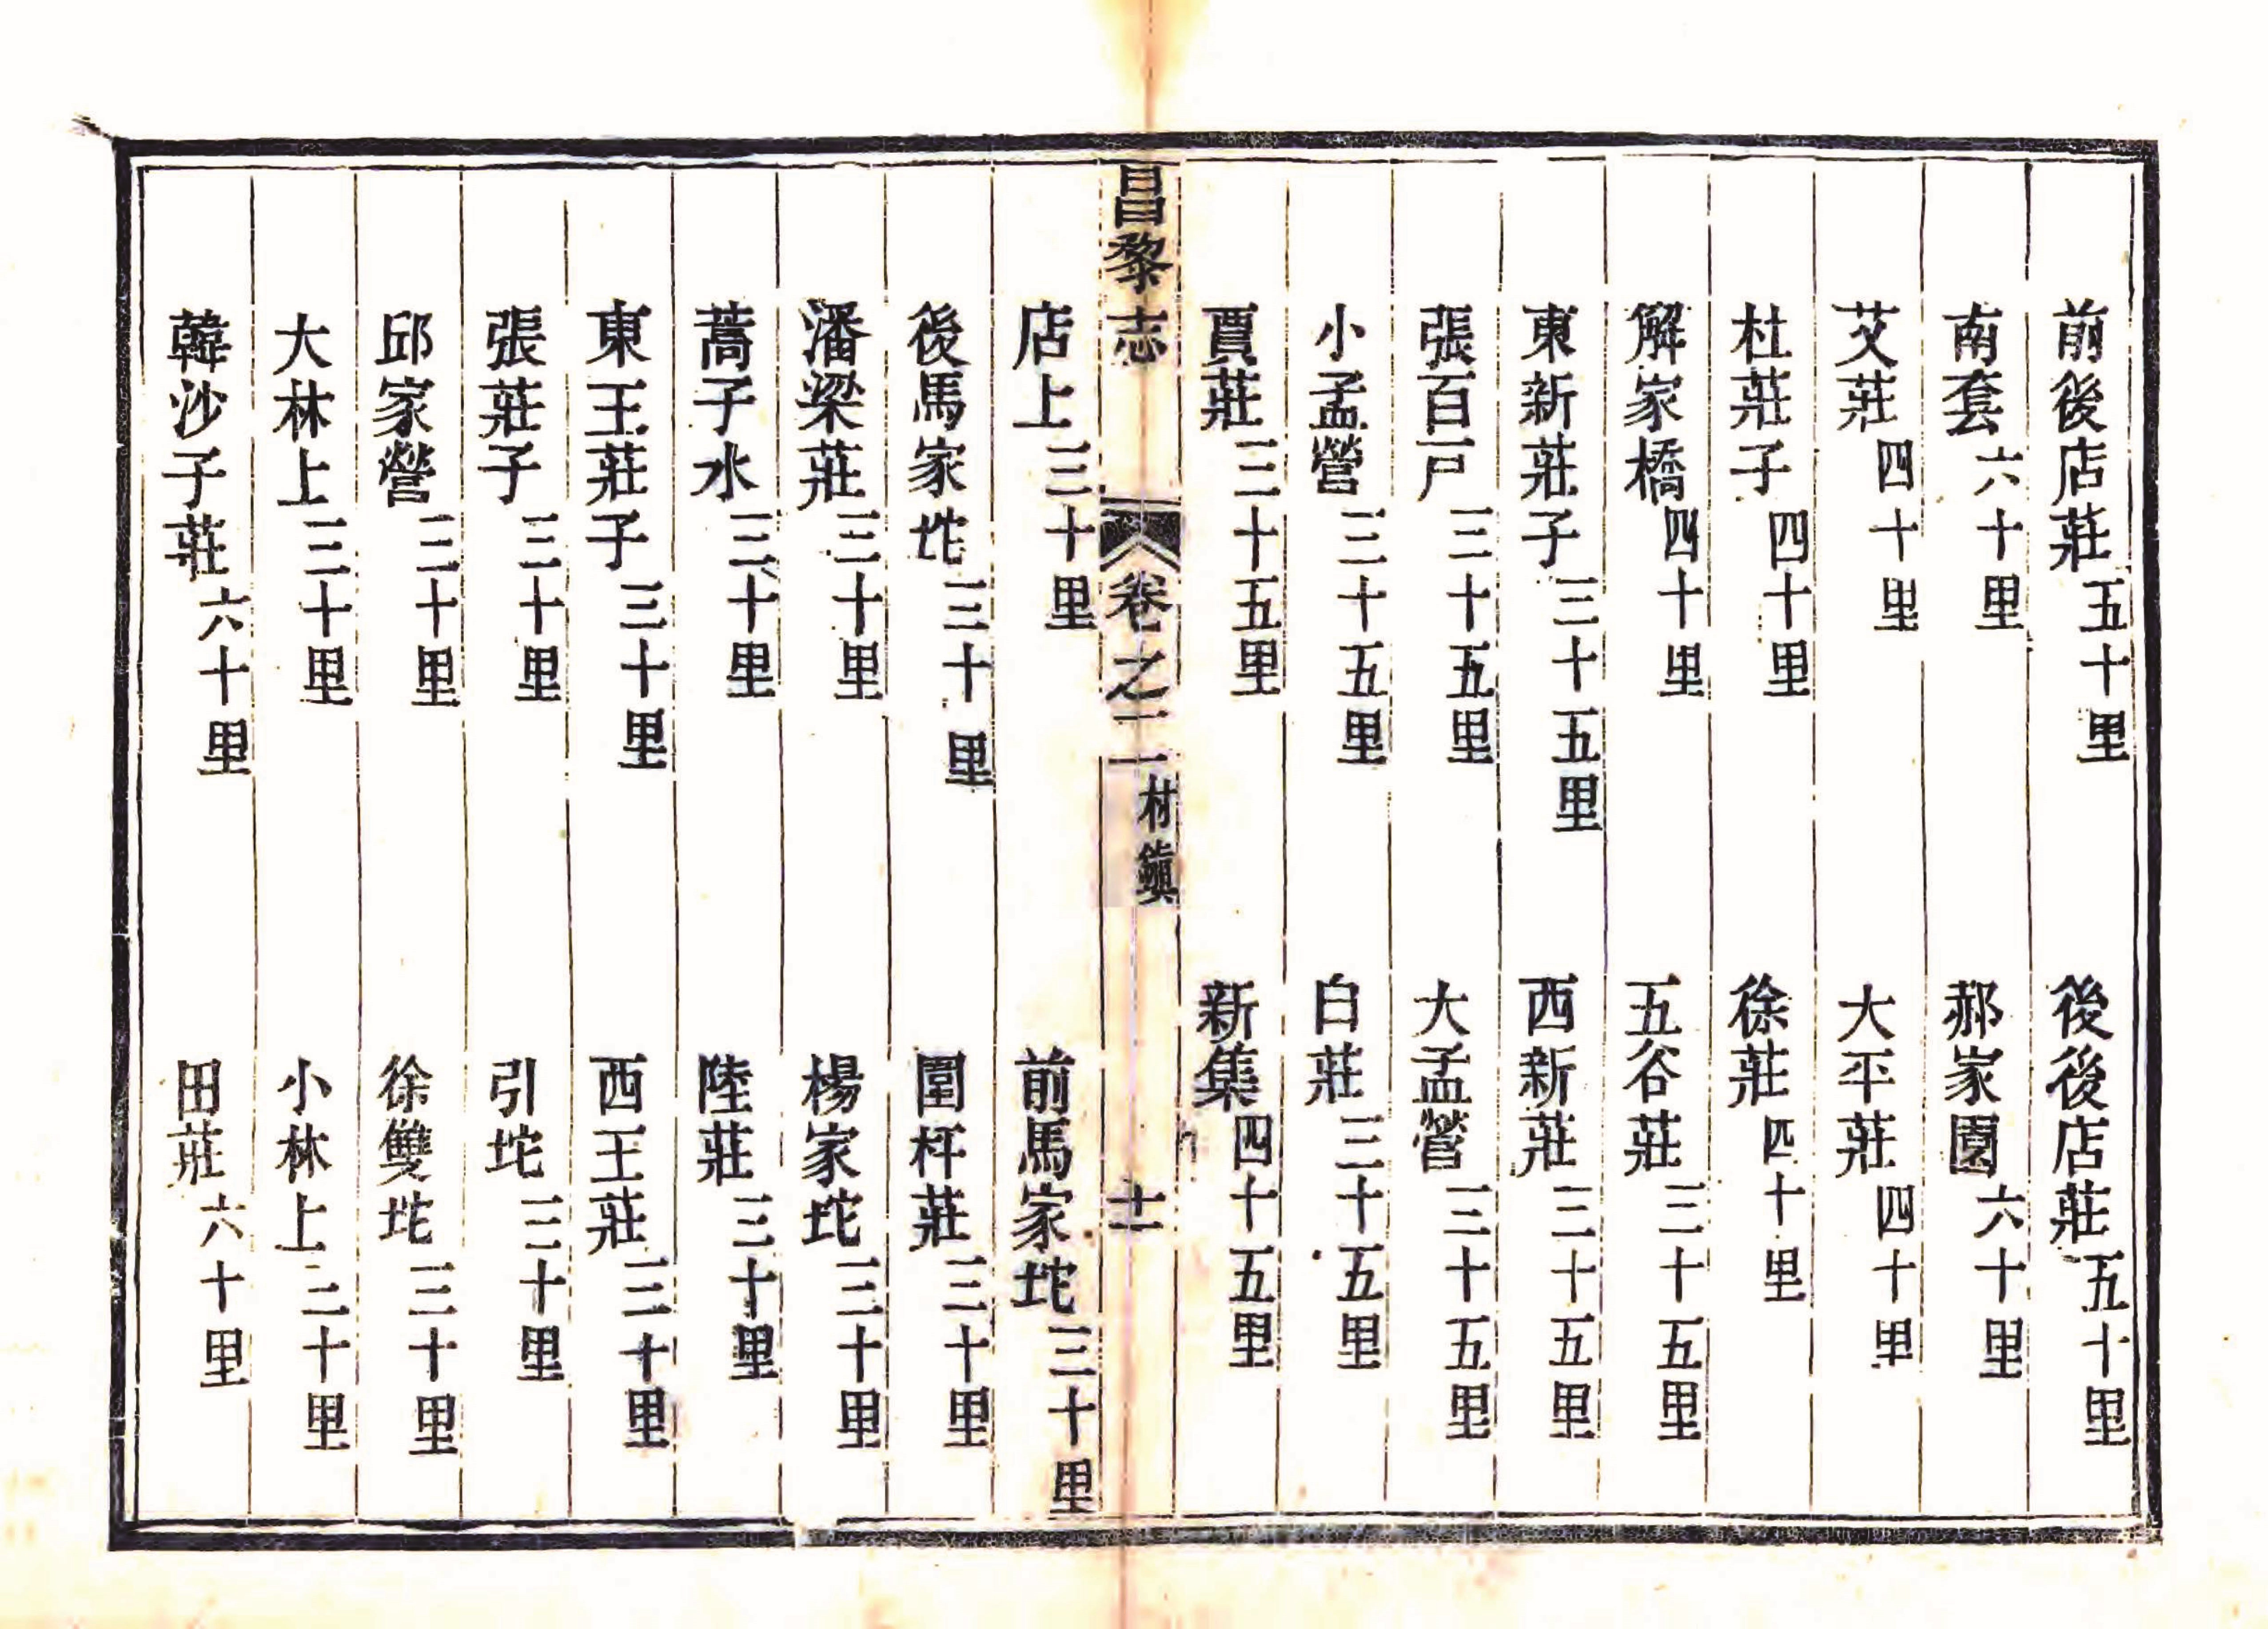 前後店莊五十里　後後店莊五十里
南套六十里　郝家園六十里
艾莊四十里　大平莊四十里
杜莊子四十里　徐莊四十里
解家橋四十里　五谷莊三十五里
東新莊子三十五里　西新莊三十五里
張百戸三十五里　大孟營三十五里
小孟營三十五里　白莊三十五里
賈莊三十五里　新集四十五里
昌黎志　卷之二　村鎮　十一
店上三十里　前馬家坨三十里
後馬家坨三十里　圍杆莊三十里
潘梁莊三十里　楊家坨三十里
蒿子水三十里　陸莊三十里
東王莊子三十里　西王莊三十里
張莊子三十里　引坨三十里
邱家營三十里　徐雙坨三十里
大林上三十里　小林上二十里
韓沙子莊六十里　田莊六十里